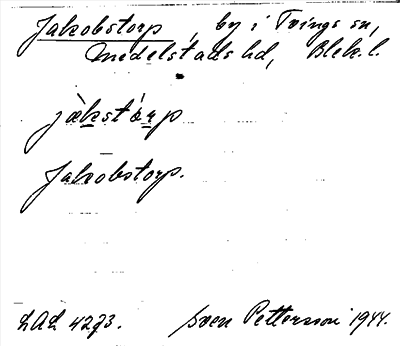 Jakobstorp, by i Tvings sn,
Medelstads hd, Blek. l.
jàkstórp
Jakobstorp.
LAL 4273.
Sven Pettersson 1944.